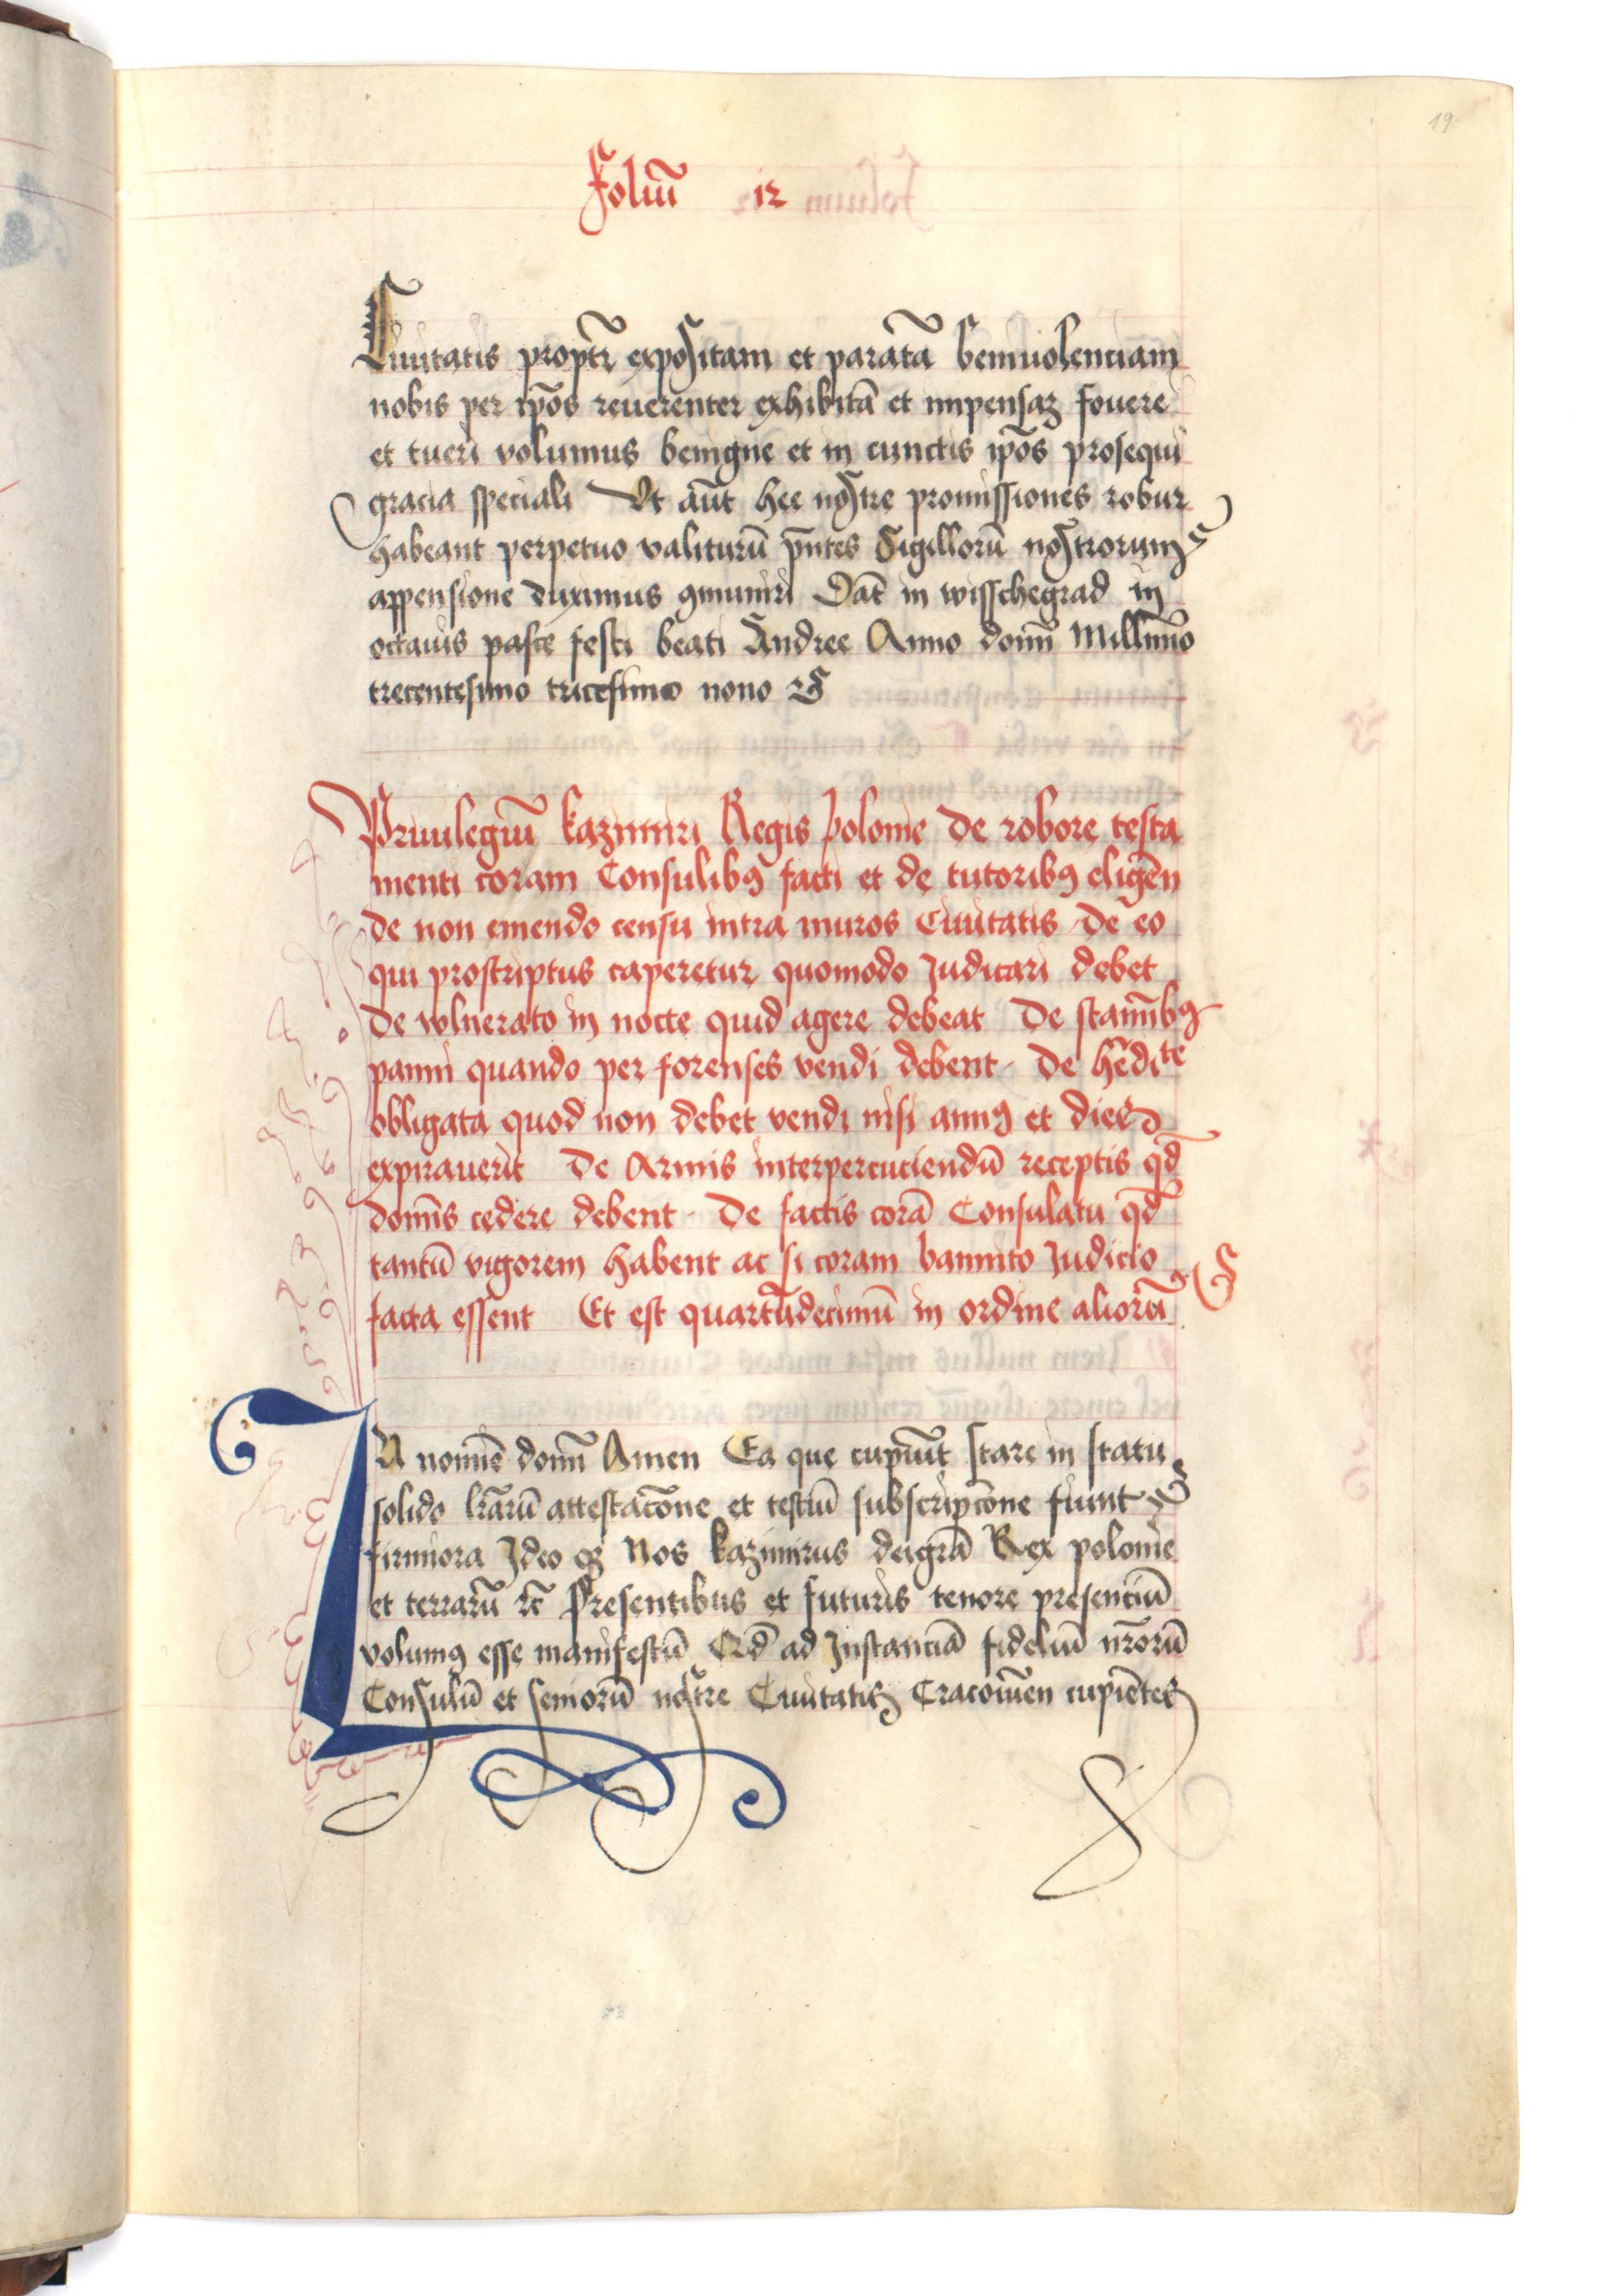 19
Foliū 12
Ciuitatis propt̄ expositam et paratā beniuolenciam
nobis per ip̄os reuerenter exhibitā et impensaȝ fouere
et tueri volumus benigne et in cunctis ip̄os prosequi
gracia speciali Vt aūt hec nostre promissiones robur
habeant perpetuo valiturū p̄ntes Sigillorū nostrorum
appensione duximus ꝯmuniri Dat̄ in wisschegrad in
octauis pasce festi beati Andree Anno domī Millīmo
trecentesimo tricesimo nono
Priuilegiū kazimiri Regis polonie De robore testa
menti coram Consulibꝰ facti et de tutoribꝰ eligēn
de non emendo censu intra muros Ciuitatis De eo
qui proscriptus caperetur quomodo Judicari debet
De vlnerato in nocte quid agere debeat De stamībꝰ
panni quando per forenses vendi debent De hēdite
obligata quod non debet vendi nisi annꝰ et dies
expirauerit De Armis interpercuciendū receptis qd̄
domīs cedere debent De factis corā Consulatu qd̄
tantū vigorem habent ac si coram bannito Judicio
facta essent Et est quartūdecimū in ordine aliorū
IN nomīe domī Amen Ea que cupiūt stare in statu
solido lr̄arū attestacōne et testiū subscripcōne fiunt
firmiora Ideo qȝ Nos kazimirus deigrā Rex polonie
et terrarū ꝛc̄ Presentibus et futuris tenore presenciū
volumꝰ esse manifestū Qd̄ ad Instanciā fideliū nr̄orū
Consulū et seniorū nostre Ciuitatis Cracouien̄ cupiētes